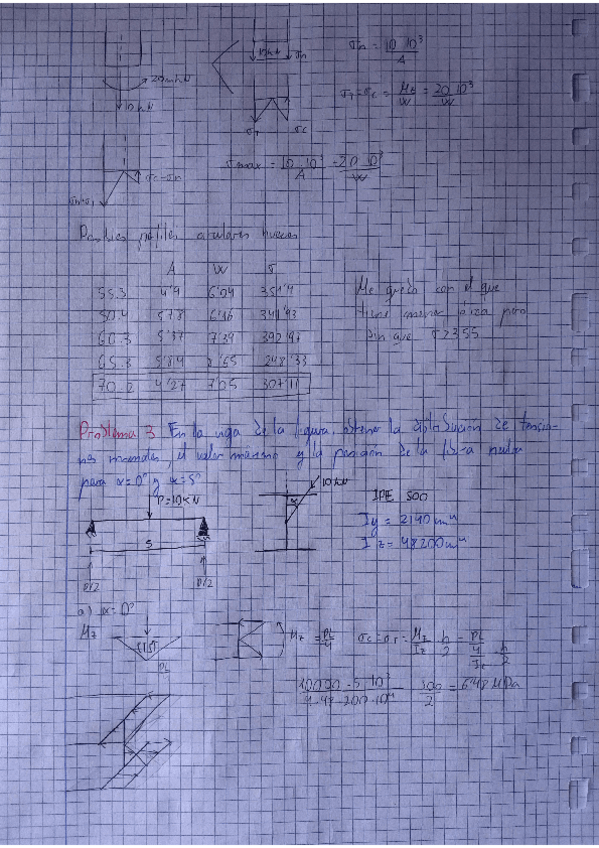 10 kN
20 m kN
10 kN
σn
σn = 10 10³ / A
σT = σc = Mz / W = 20 10³ / W
σT
σc
σc - σn
σmax = 10 10³ / A - 20 10³ / W
perfiles circulares huecos
A W σ
55.3 4'9 6'04
50.4 5'78
60.3 5'37 7'39
65.3 248'33
70.2 4'27 7'05 307'11
Me quedo con el que
tiene menor área pero
sin que σ>355
Problema 3 En la viga de la figura, obtener la distribución de tensio-
nes normales, el valor máximo y la posición de la fibra neutra
para α=0° y α=5°
P=10KN
10 kN
α
IPE 500
5
Iy = 2140 cm⁴
Iz = 48200 cm⁴
P/2
P/2
a) α=0°
Mz
PL
Mz = PL/4
σc = σT = Mz / Iz h/2 = PL/4 / Iz h/2
10000 · 5 10³ / 4 · 48 · 200 · 10⁴ 500 / 2 = 6'48 MPa